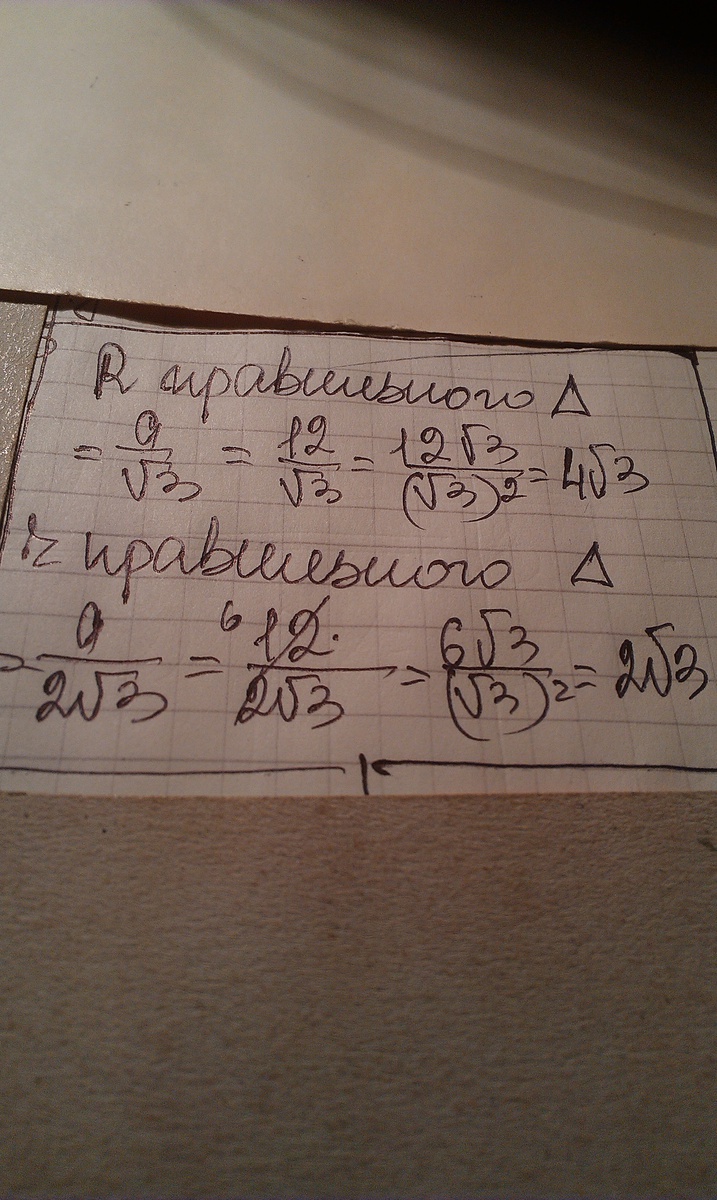 R правильного Δ
= a/√3 = 12/√3 = 12√3/(√3)² = 4√3
r правильного Δ
= a/2√3 = 6 12/2√3 = 6√3/(√3)² = 2√3